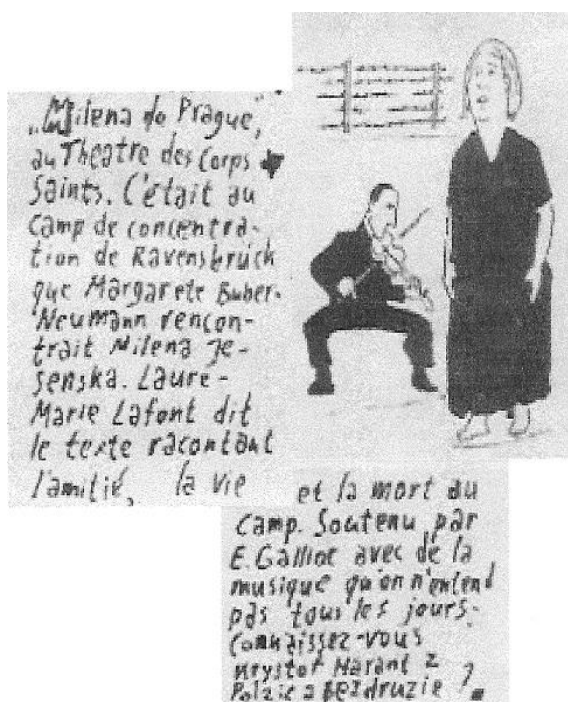 „Milena de Prague",
au Theatre des Corps
Saints. C'était au
camp de concentra-
tion de Ravensbruck
que Margarete Buber-
Neumann rencon-
trait Milena Je-
senska. Laure-
Marie Lafont dit
le texte racontant
l'amitié, la vie
et la mort au
camp. Soutenu par
E. Galliot avec de la
musique qu'on n'entend
pas tous les jours.
Connaissez-vous
Krystof Harant z
Polzic a Bezdruzic ?